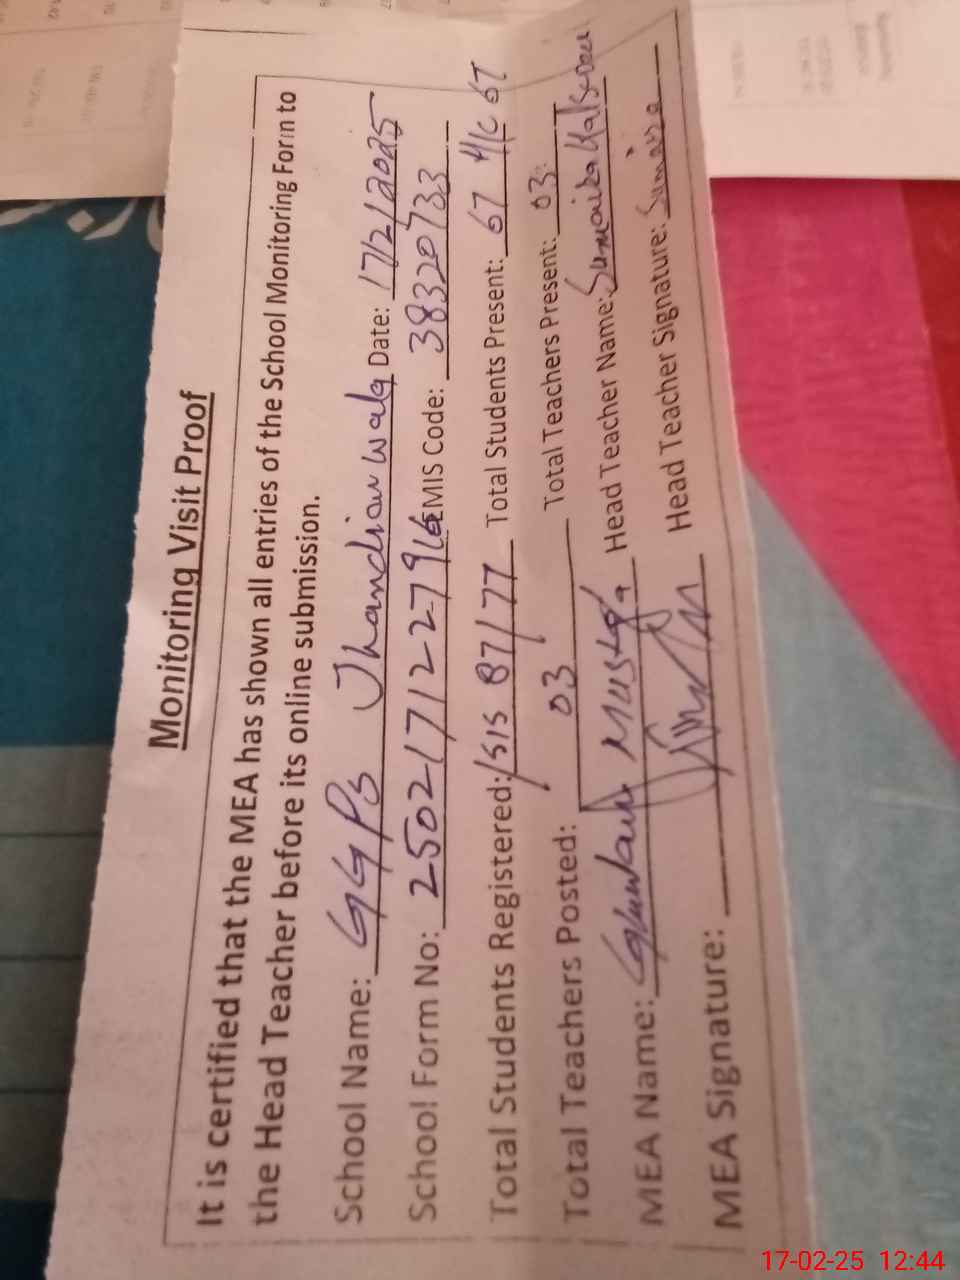 Monitoring Visit Proof
It is certified that the MEA has shown all entries of the School Monitoring Form to
the Head Teacher before its online submission.
School Name: GGPS Jhandian wala Date: 17/2/2025
School Form No: 2502171227916 EMIS Code: 38320733
Total Students Registered: SIS 87/77 Total Students Present: 67 H/C 67
Total Teachers Posted: 03 Total Teachers Present: 03
MEA Name: Ghulam Mustafa Head Teacher Name: Sumaira
MEA Signature: Head Teacher Signature: Sumaira
17-02-25 12:44